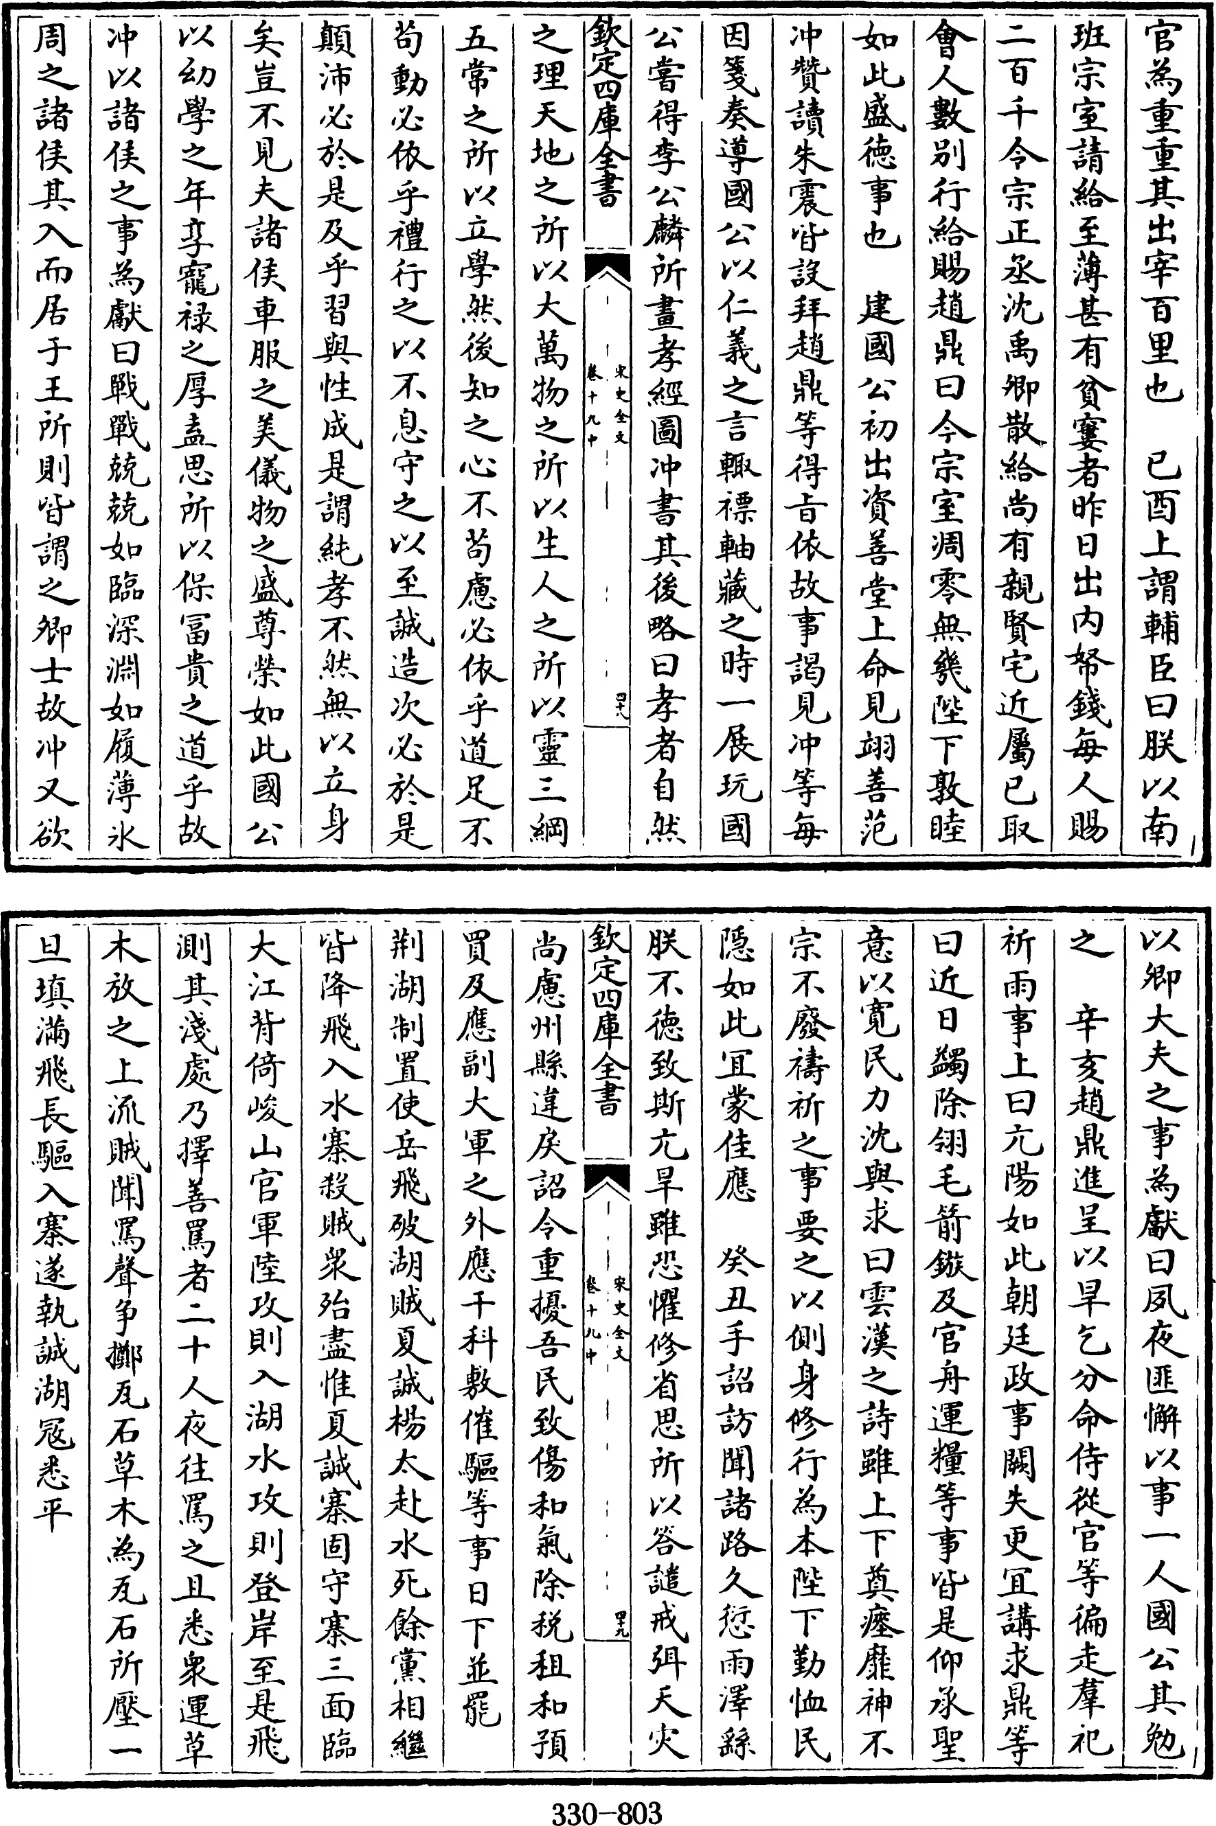 官為重重其出宰百里也　己酉上謂輔臣曰朕以南
班宗室請給至薄甚有貧窶者昨日出内帑錢每人賜
二百千令宗正丞沈禹卿散給尚有親賢宅近屬已取
會人數别行給賜趙鼎曰今宗室凋零無幾陛下敦睦
如此盛德事也　建國公初出資善堂上命見翊善范
冲贊讀朱震皆設拜趙鼎等得旨依故事謁見冲等每
因箋奏導國公以仁義之言輙褾軸藏之時一展玩國
公嘗得李公麟所畫孝經圖冲書其後略曰孝者自然
欽定四庫全書
宋史全文
卷十九中
四十八
之理天地之所以大萬物之所以生人之所以靈三綱
五常之所以立學然後知之心不苟慮必依乎道足不
苟動必依乎禮行之以不息守之以至誠造次必於是
顛沛必於是及乎習與性成是謂純孝不然無以立身
矣豈不見夫諸侯車服之美儀物之盛尊榮如此國公
以幼學之年享寵禄之厚盍思所以保富貴之道乎故
冲以諸侯之事為獻曰戰戰兢兢如臨深淵如履薄氷
周之諸侯其入而居于王所則皆謂之卿士故冲又欲
以卿大夫之事為獻曰夙夜匪懈以事一人國公其勉
之　辛亥趙鼎進呈以旱乞分命侍從官等徧走羣祀
祈雨事上曰亢陽如此朝廷政事闕失更宜講求鼎等
曰近日蠲除翎毛箭鏃及官舟運糧等事皆是仰承聖
意以寛民力沈與求曰雲漢之詩雖上下奠瘞靡神不
宗不廢禱祈之事要之以側身修行為本陛下勤恤民
隱如此宜蒙佳應　癸丑手詔訪聞諸路久愆雨澤繇
朕不德致斯亢旱雖恐懼修省思所以答譴戒弭天災
欽定四庫全書
宋史全文
卷十九中
四十九
尚慮州縣違戾詔令重擾吾民致傷和氣除税租和預
買及應副大軍之外應干科敷催驅等事日下並罷
荆湖制置使岳飛破湖賊夏誠楊太赴水死餘黨相繼
皆降飛入水寨殺賊衆殆盡惟夏誠寨固守寨三面臨
大江背倚峻山官軍陸攻則入湖水攻則登岸至是飛
測其淺處乃擇善罵者二十人夜往罵之且悉衆運草
木放之上流賊聞罵聲争擲瓦石草木為瓦石所壓一
旦填滿飛長驅入寨遂執誠湖冦悉平
330-803